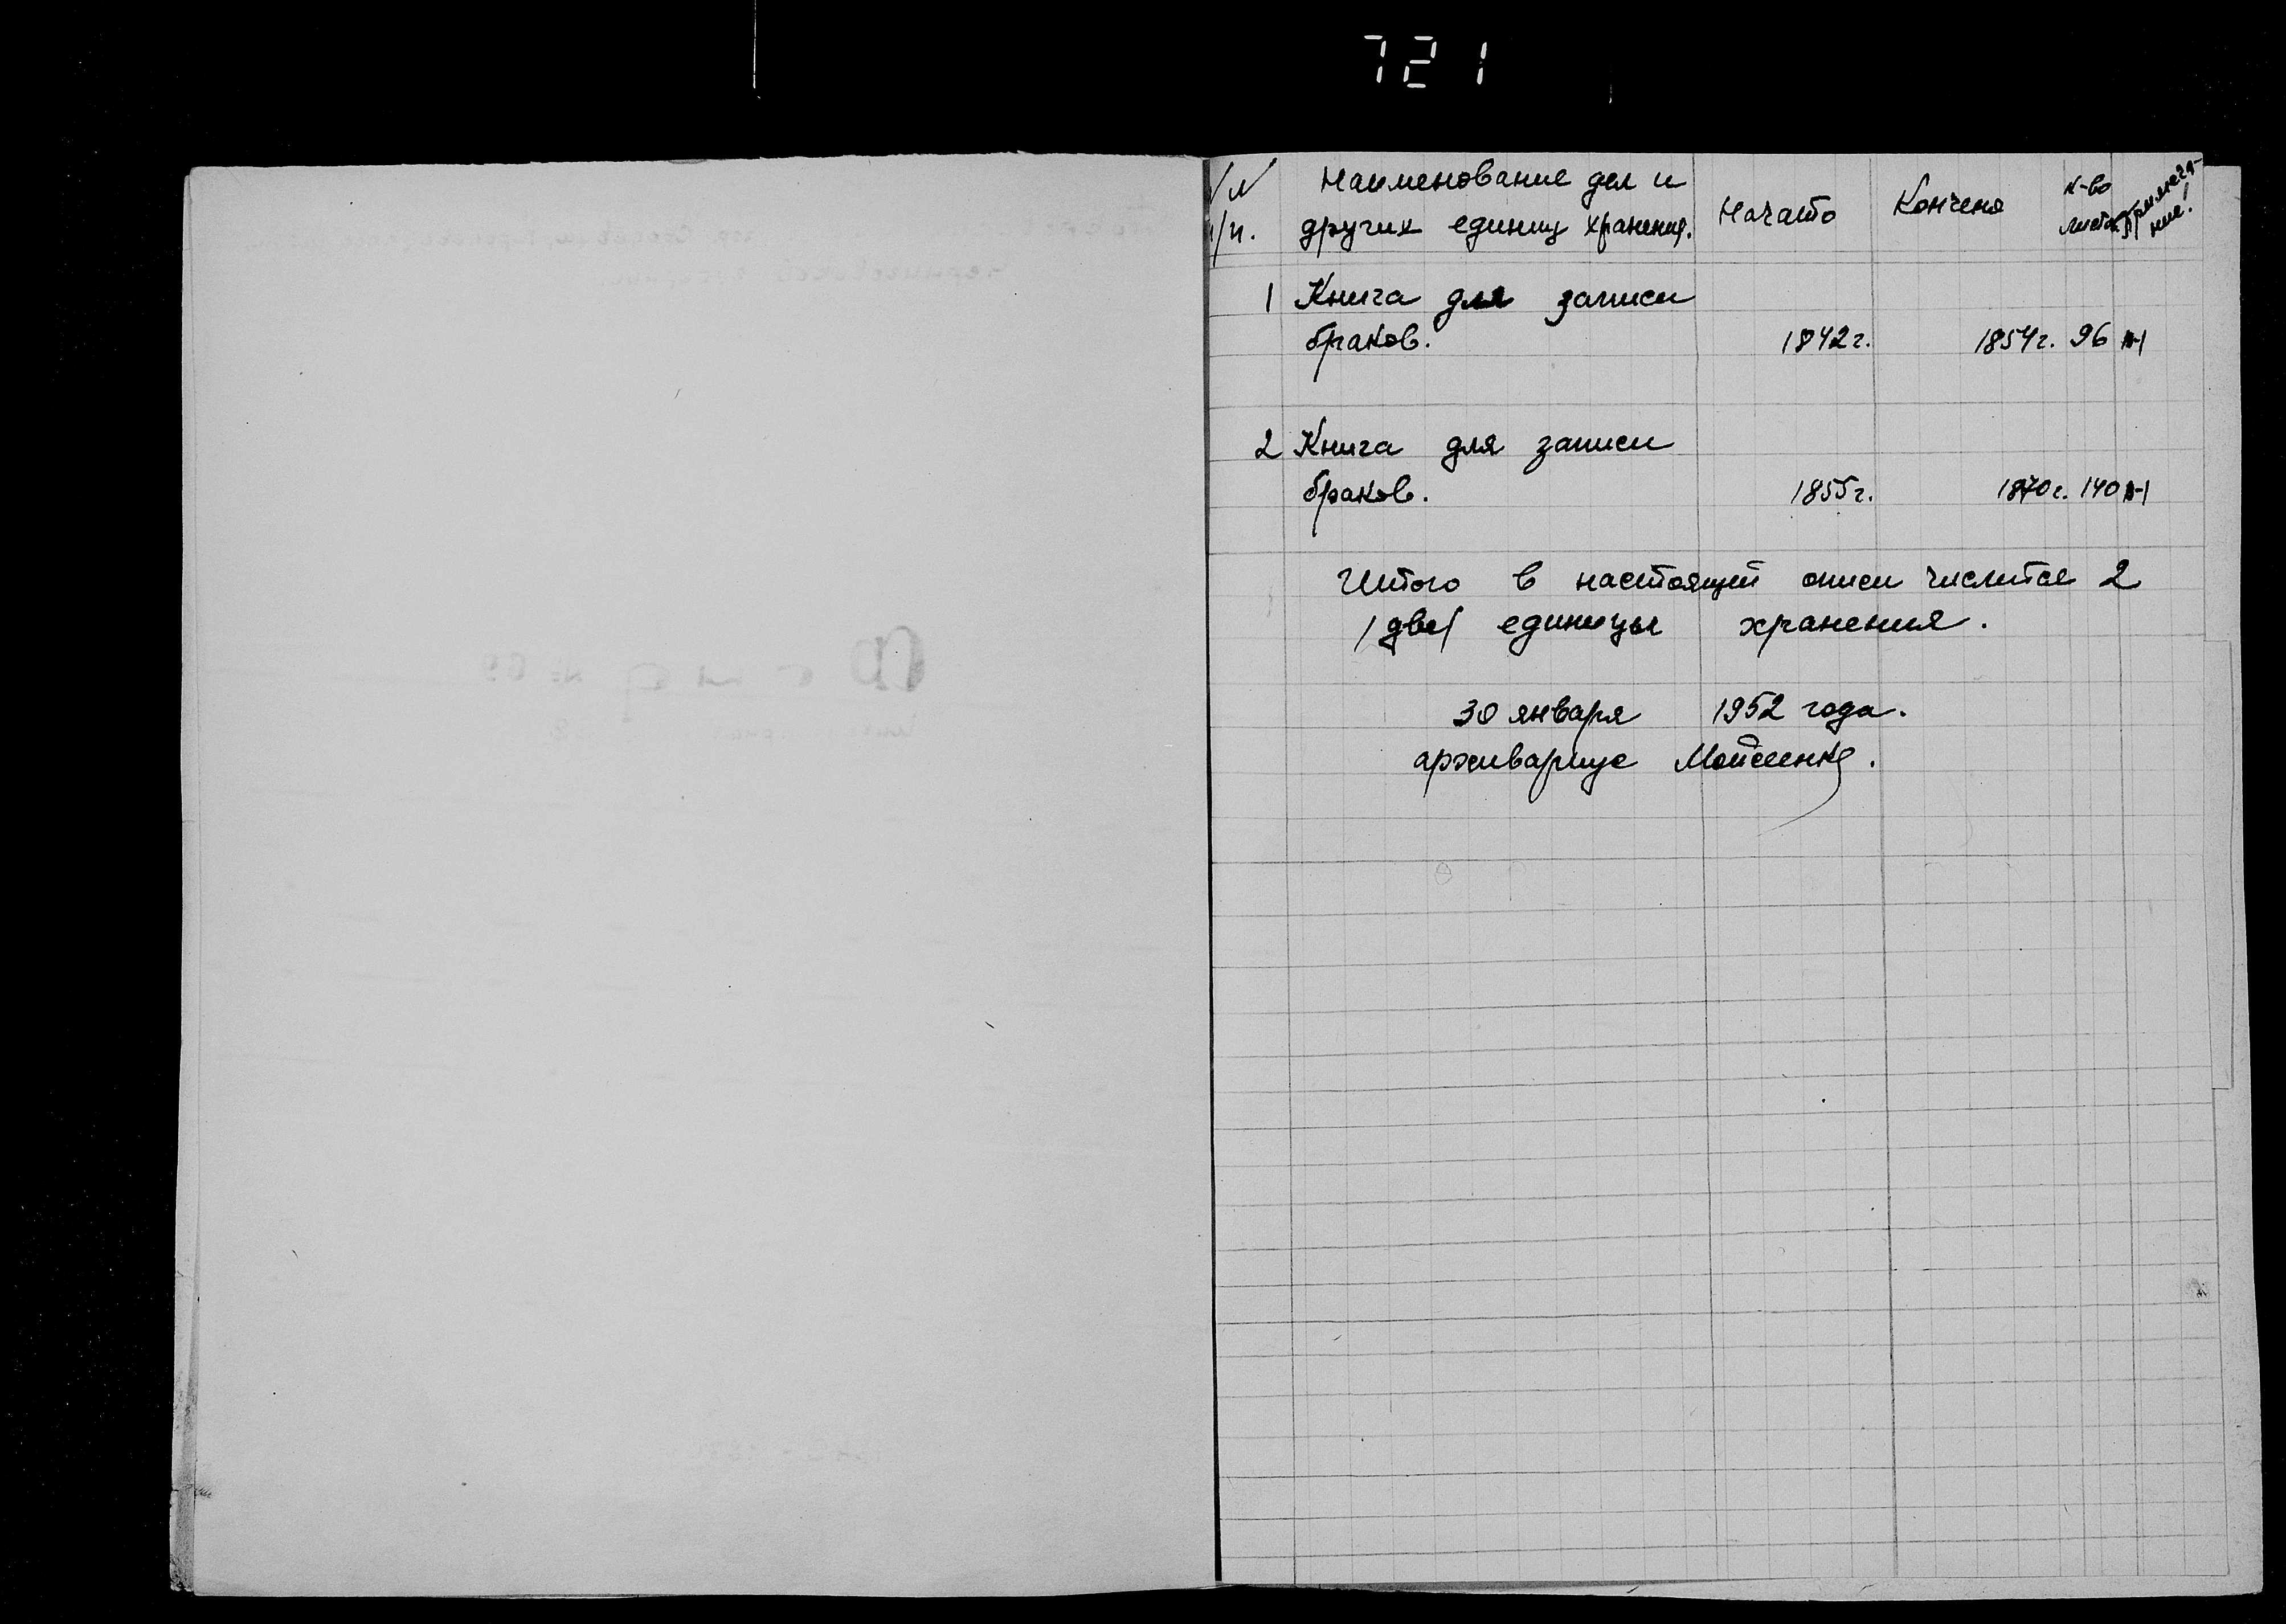 721
№ Наименование дел и
п/п. других единиц хранения. Начато Кончено к-во листов примеча-ние!
1 Книга для записи
браков. 1842г. 1854г. 96
2 Книга для записи
браков. 1855г. 1870г. 140
Итого в настоящей описи числится 2
/две/ единицы хранения.
30 января 1952 года.
архивариус Мойсеенко.